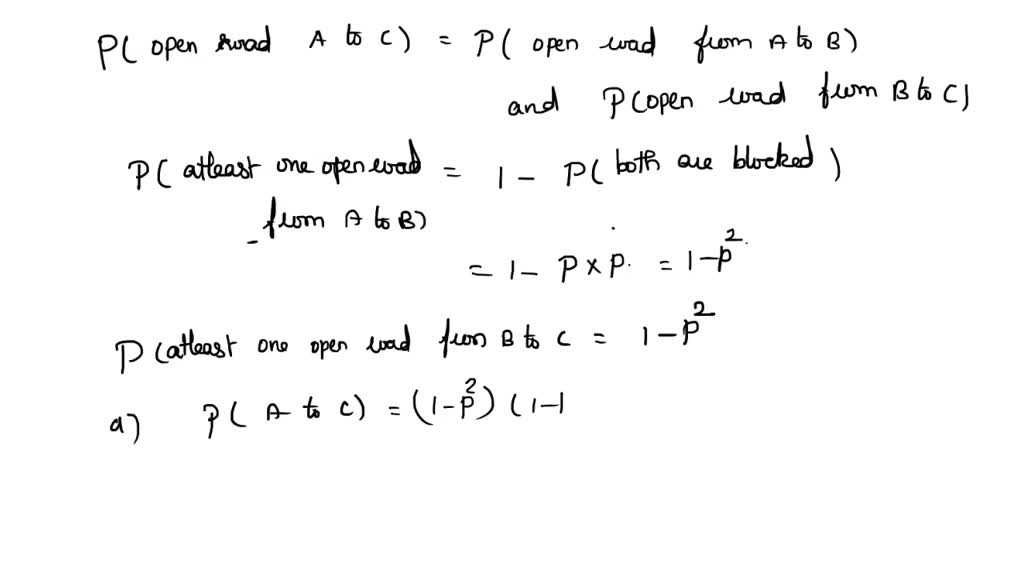 P( open road A to C) = P( open road from A to B)
and P(open road from B to C)
P( atleast one open road = 1 - P( both are blocked )
from A to B)
= 1 - P × P. = 1-P²
P (atleast one open road from B to C = 1-P²
a) P( A to C) = (1-P²) (1-1